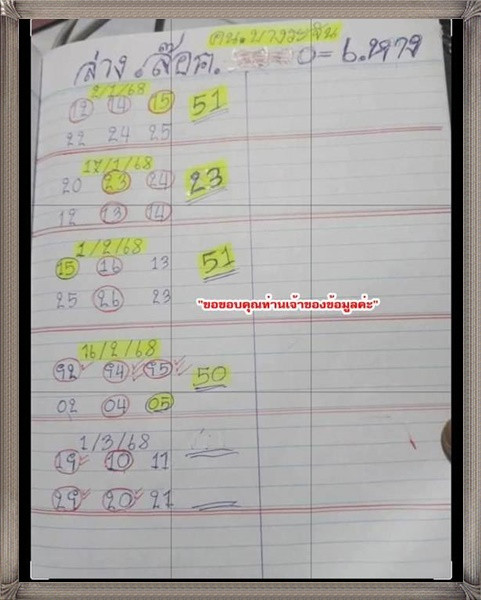 คน.บางระจัน
ล่าง.ล๊อค. 0=6.หาง
2/1/68
12 14 15 51
22 24 25
17/1/68
20 23 24 23
12 13 14
1/2/68
15 16 13 51
25 26 23
"ขอขอบคุณท่านเจ้าของข้อมูลค่ะ"
16/2/68
92 94 95 50
02 04 05
1/3/68
19 10 11
29 20 21